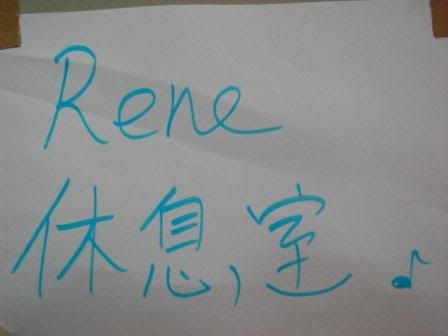 Rene
休息室♪